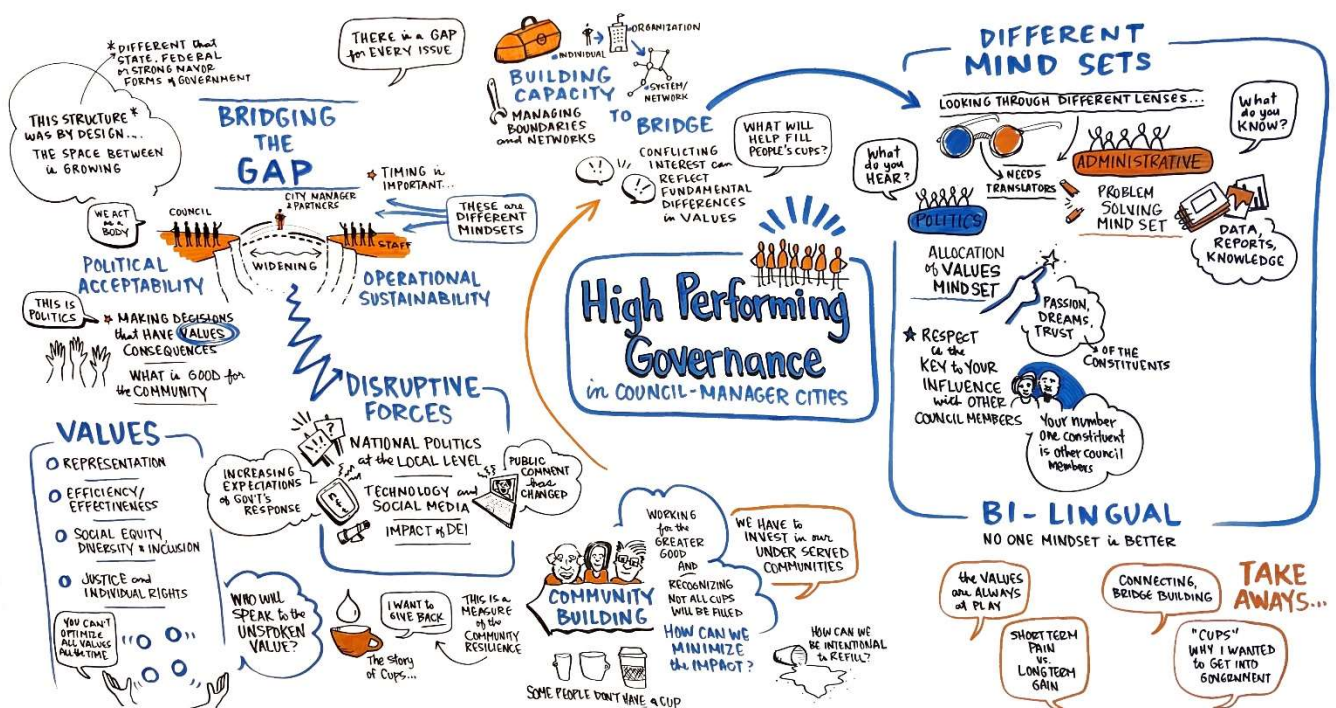 * DIFFERENT that
STATE, FEDERAL
or STRONG MAYOR
FORMS of GOVERNMENT
THIS STRUCTURE *
WAS BY DESIGN....
THE SPACE BETWEEN
is GROWING
BRIDGING
THE
GAP
THERE is a GAP
for EVERY ISSUE
WE ACT
as a
BODY
COUNCIL
CITY MANAGER
& PARTNERS
STAFF
WIDENING
TIMING is
IMPORTANT...
THESE are
DIFFERENT
MINDSETS
POLITICAL
ACCEPTABILITY
OPERATIONAL
SUSTAINABILITY
THIS IS
POLITICS
MAKING DECISIONS
that HAVE VALUES
CONSEQUENCES
WHAT is GOOD for
the COMMUNITY
VALUES
REPRESENTATION
EFFICIENCY/
EFFECTIVENESS
SOCIAL EQUITY,
DIVERSITY & INCLUSION
JUSTICE and
INDIVIDUAL RIGHTS
YOU CAN'T
OPTIMIZE
ALL VALUES
All the TIME
WHO WILL
SPEAK to the
UNSPOKEN
VALUE?
DISRUPTIVE
FORCES
NATIONAL POLITICS
at the LOCAL LEVEL
TECHNOLOGY and
SOCIAL MEDIA
IMPACT of DEI
INCREASING
EXPECTATIONS
of GOV'T'S
RESPONSE
PUBLIC
COMMENT
has
CHANGED
The Story
of Cups...
I WANT to
GIVE BACK
THIS IS a
MEASURE
of the COMMUNITY
RESILIENCE
BUILDING
CAPACITY
TO
BRIDGE
INDIVIDUAL
ORGANIZATION
SYSTEM/
NETWORK
MANAGING
BOUNDARIES
and NETWORKS
CONFLICTING
INTEREST can
REFLECT
FUNDAMENTAL
DIFFERENCES
in VALUES
WHAT WILL
HELP FILL
PEOPLE'S CUPS?
High Performing
Governance
in COUNCIL-MANAGER CITIES
COMMUNITY
BUILDING
WORKING
for the
GREATER
GOOD
AND
RECOGNIZING
NOT ALL CUPS
WILL BE FILLED
HOW CAN WE
MINIMIZE
the IMPACT?
WE HAVE to
INVEST in our
UNDER SERVED
COMMUNITIES
SOME PEOPLE DON'T HAVE a CUP
HOW CAN WE
BE INTENTIONAL
to REFILL?
DIFFERENT
MIND SETS
LOOKING THROUGH DIFFERENT LENSES...
NEEDS
TRANSLATORS
What
do you
HEAR?
POLITICS
ALLOCATION
of VALUES
MINDSET
ADMINISTRATIVE
What
do you
KNOW?
PROBLEM
SOLVING
MIND SET
DATA,
REPORTS,
KNOWLEDGE
PASSION,
DREAMS,
TRUST
OF THE
CONSTITUENTS
RESPECT
is the
KEY to YOUR
INFLUENCE
with OTHER
COUNCIL MEMBERS
Your number
one constituent
is other council
members
BI-LINGUAL
NO ONE MINDSET is BETTER
TAKE
AWAYS...
the VALUES
are ALWAYS
at PLAY
SHORT TERM
PAIN
vs.
LONG TERM
GAIN
CONNECTING,
BRIDGE BUILDING
"CUPS"
WHY I WANTED
to GET INTO
GOVERNMENT